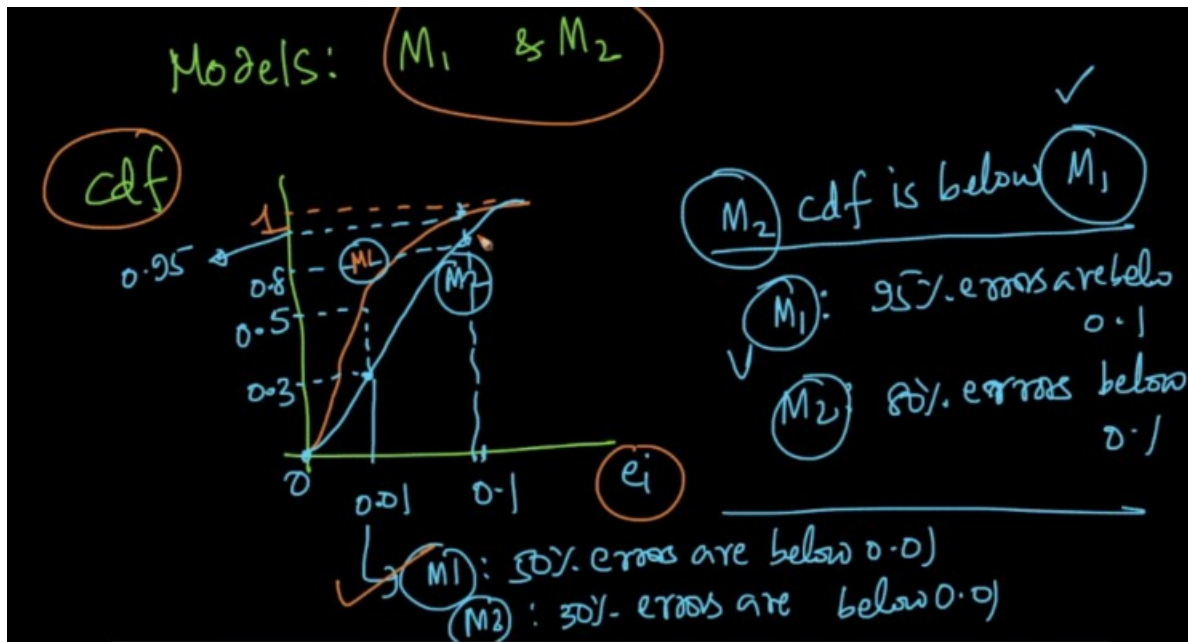 Models: M1 & M2
cdf
1
0.95
0.8
0.5
0.3
0
0.01
0.1
ei
M1
M2
M2 cdf is below M1
M1: 95% errors are belo
0.1
M2: 80% errors below
0.1
M1: 50% errors are below 0.01
M2: 30% errors are below 0.01